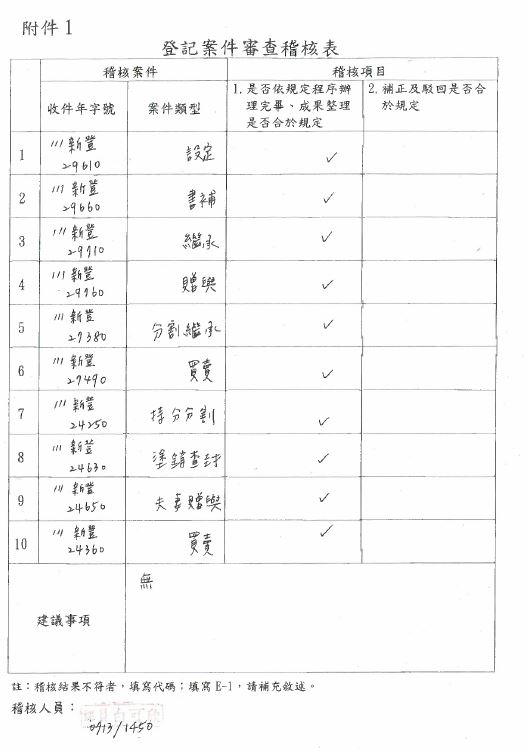 附件1
登記案件審查稽核表
稽核案件 稽核項目
收件年字號 案件類型 1.是否依規定程序辦理完畢、成果整理是否合於規定 2.補正及駁回是否合於規定
1 111新登 29610 設定 ✓
2 111新登 29660 書補 ✓
3 111新登 29710 繼承 ✓
4 111新登 29760 贈與 ✓
5 111新登 27380 分割繼承 ✓
6 111新登 27490 買賣 ✓
7 111新登 24250 持分分割 ✓
8 111新登 24630 塗銷查封 ✓
9 111新登 24650 夫妻贈與 ✓
10 111新登 24360 買賣 ✓
建議事項 無
註：稽核結果不符者，填寫代碼；填寫E-1，請補充敘述。
稽核人員：
0913/1450